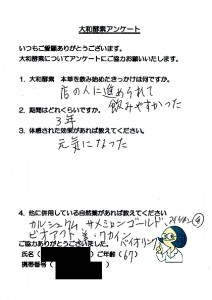 大和酵素アンケート
いつもご愛顧ありがとうございます。
大和酵素についてアンケートにご協力お願いいたします。
1. 大和酵素　本草を飲み始めたきっかけは何ですか。
店の人に進められて
飲みやすかった
2. 期間はどれくらいですか。
3年
3. 体感された効果があれば教えてください
元気になった
4. 他に併用している自然薬があれば教えてください
カルシュウム、サメミロンゴールド、
ビオアクト、美・ワカイン バイオリンク
ご協力ありがとうございました。
氏名 ご年齢(67)
携帯番号